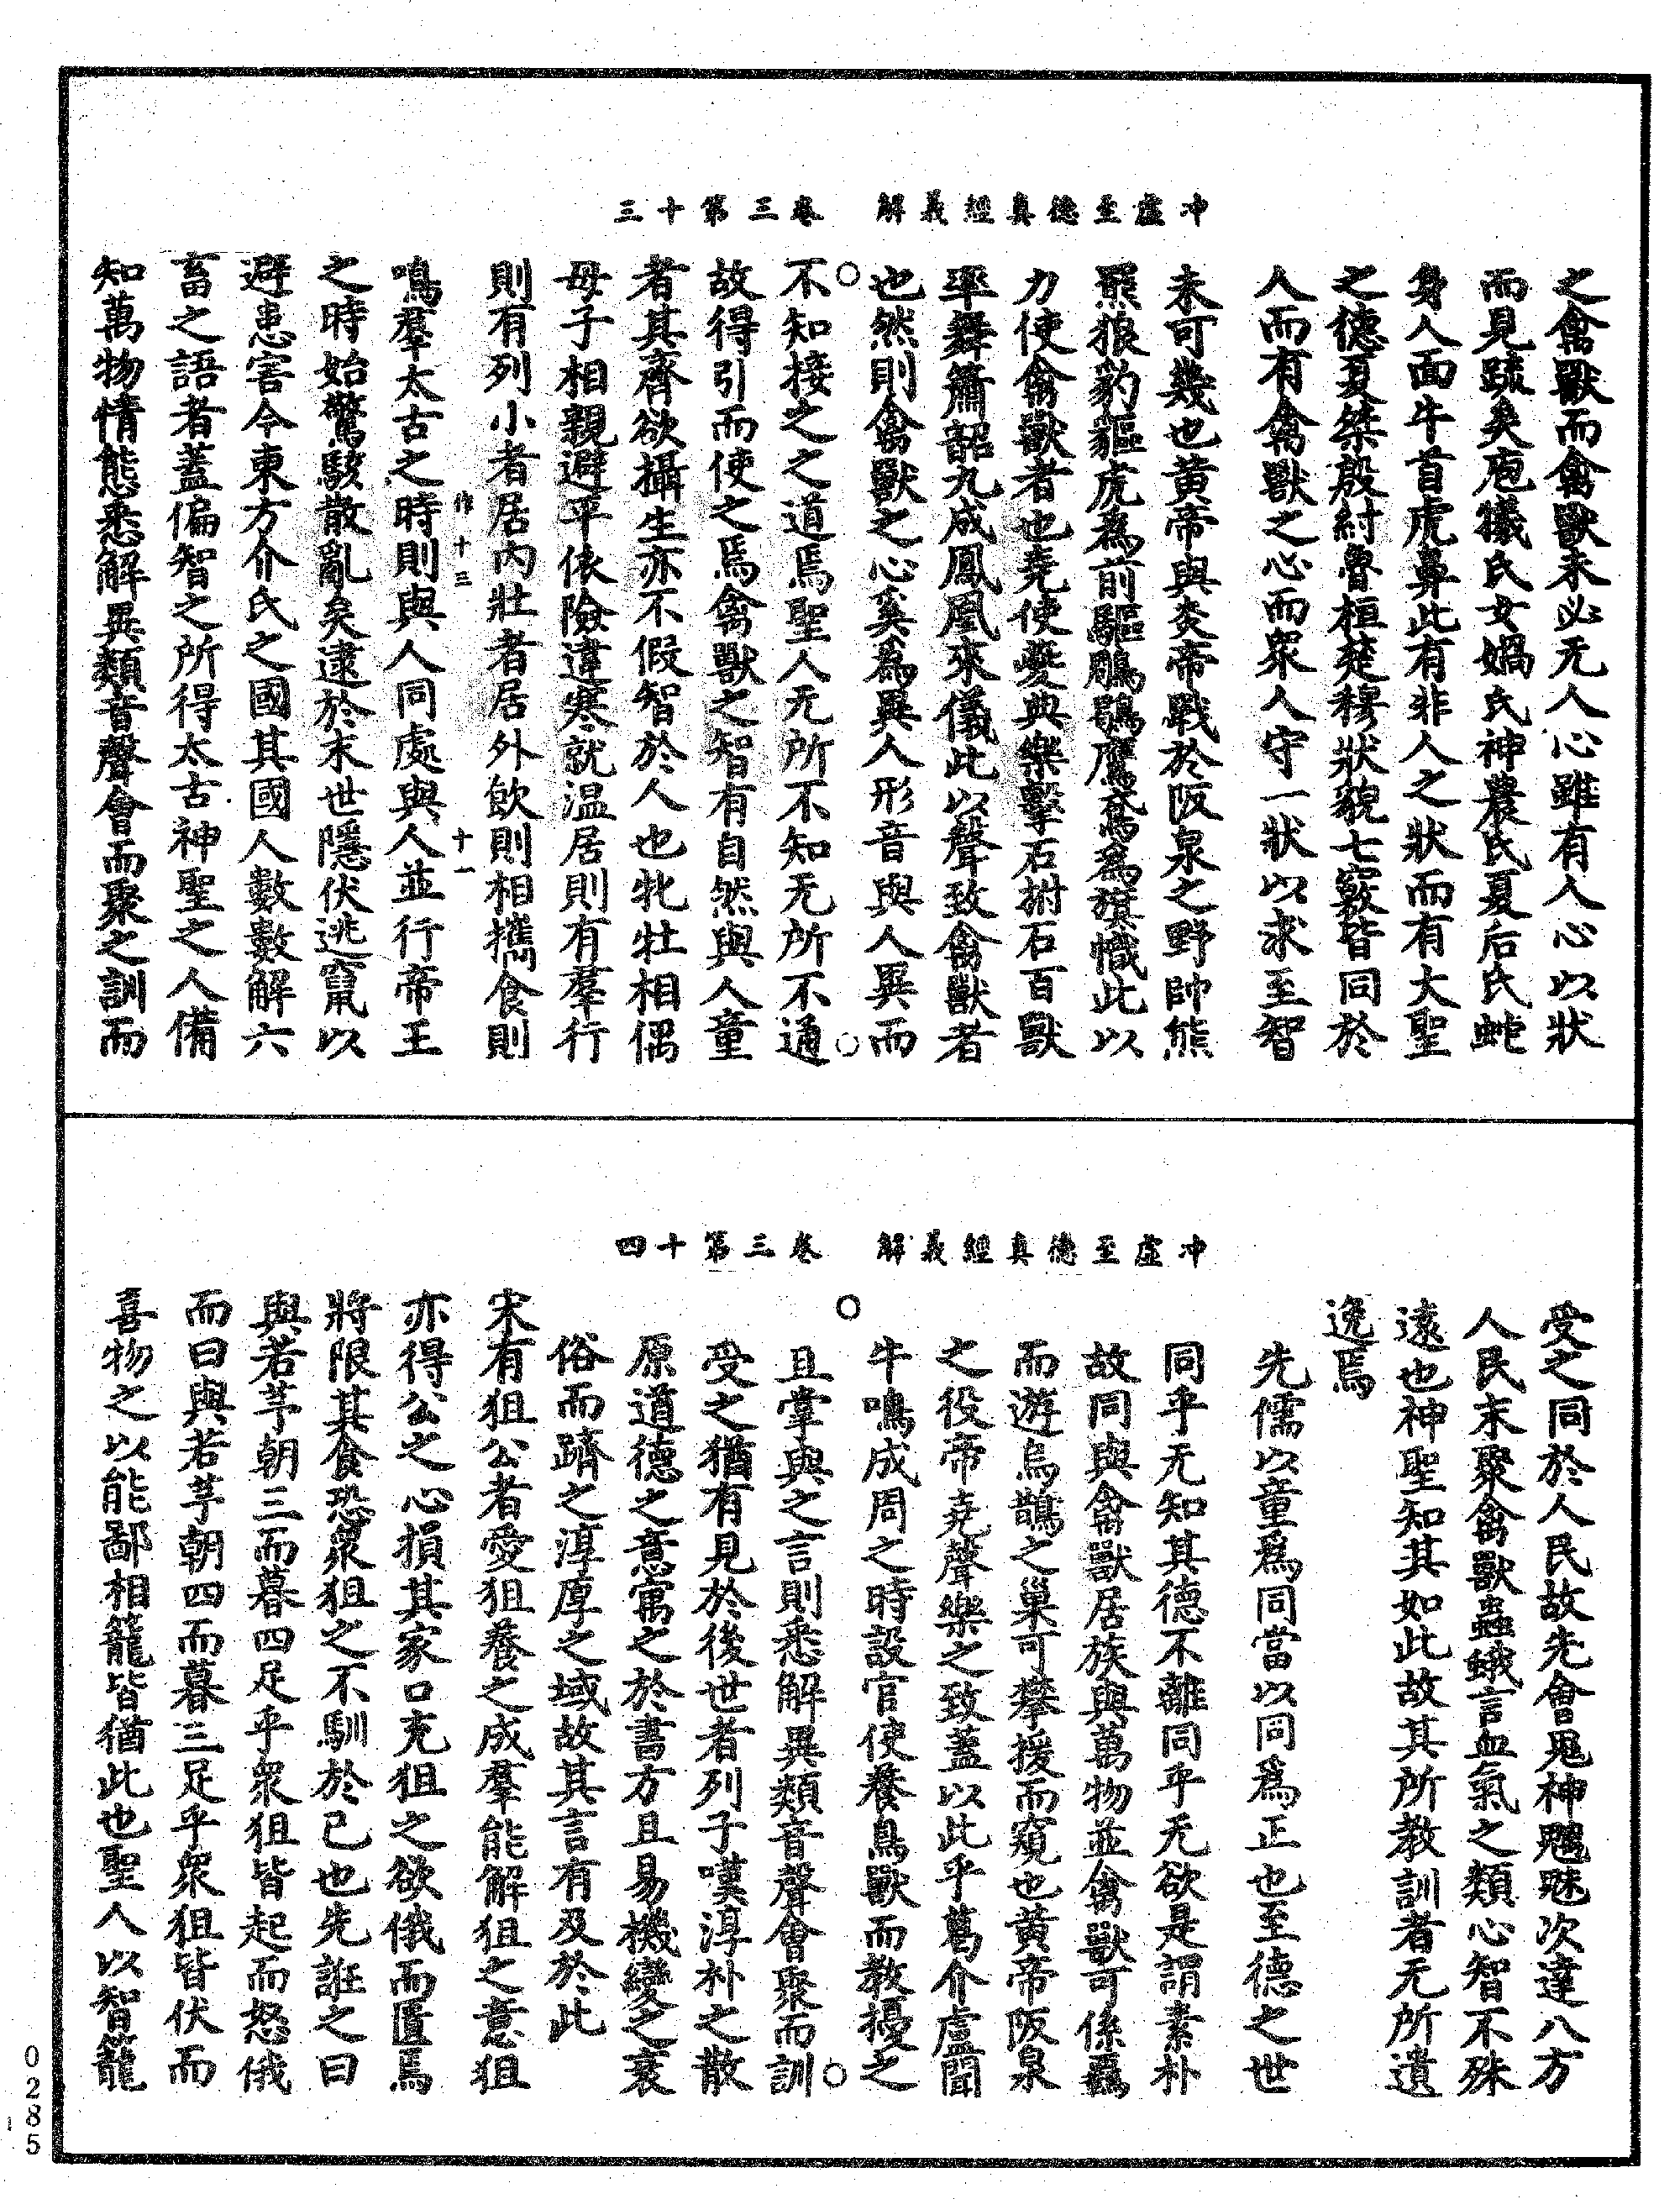 冲虛至德真經義解　卷三第十三
之禽獸而禽獸未必无人心雖有人心以狀
而見疏矣庖犧氏女媧氏神農氏夏后氏蛇
身人面牛首虎鼻此有非人之狀而有大聖
之德夏桀殷紂魯桓楚穆狀貌七竅皆同於
人而有禽獸之心而衆人守一狀以求至智
未可幾也黃帝與炎帝戰於阪泉之野帥熊
羆狼豹貙虎爲前驅鵰鶡鷹鳶爲旗幟此以
力使禽獸者也堯使夔典樂擊石拊石百獸
率舞簫韶九成鳳凰來儀此以聲致禽獸者
也然則禽獸之心奚爲異人形音與人異而
不知接之之道焉聖人无所不知无所不通
故得引而使之焉禽獸之智有自然與人童
者其齊欲攝生亦不假智於人也牝牡相偶
母子相親避平依險違寒就温居則有羣行
則有列小者居内壯者居外飲則相攜食則
作十三　十一
鳴羣太古之時則與人同處與人並行帝王
之時始驚駭散亂矣逮於末世隱伏逃竄以
避患害今東方介氏之國其國人數數解六
畜之語者蓋偏智之所得太古神聖之人備
知萬物情態悉解異類音聲會而聚之訓而
冲虛至德真經義解　卷三第十四
受之同於人民故先會鬼神魑魅次達八方
人民末聚禽獸蟲蛾言血氣之類心智不殊
遠也神聖知其如此故其所教訓者无所遺
逸焉
先儒以童爲同當以同爲正也至德之世
同乎无知其德不離同乎无欲是謂素朴
故同與禽獸居族與萬物並禽獸可係羈
而遊烏鵲之巢可攀援而窺也黃帝阪泉
之役帝堯聲樂之致蓋以此乎葛介盧聞
牛鳴成周之時設官使養鳥獸而教擾之
且掌與之言則悉解異類音聲會聚而訓
受之猶有見於後世者列子嘆淳朴之散
原道德之意寓之於書方且易機變之衰
俗而躋之淳厚之域故其言有及於此
宋有狙公者愛狙養之成羣能解狙之意狙
亦得公之心損其家口充狙之欲俄而匱焉
將限其食恐衆狙之不馴於已也先誑之曰
與若芧朝三而暮四足乎衆狙皆起而怒俄
而曰與若芧朝四而暮三足乎衆狙皆伏而
喜物之以能鄙相籠皆猶此也聖人以智籠
0285